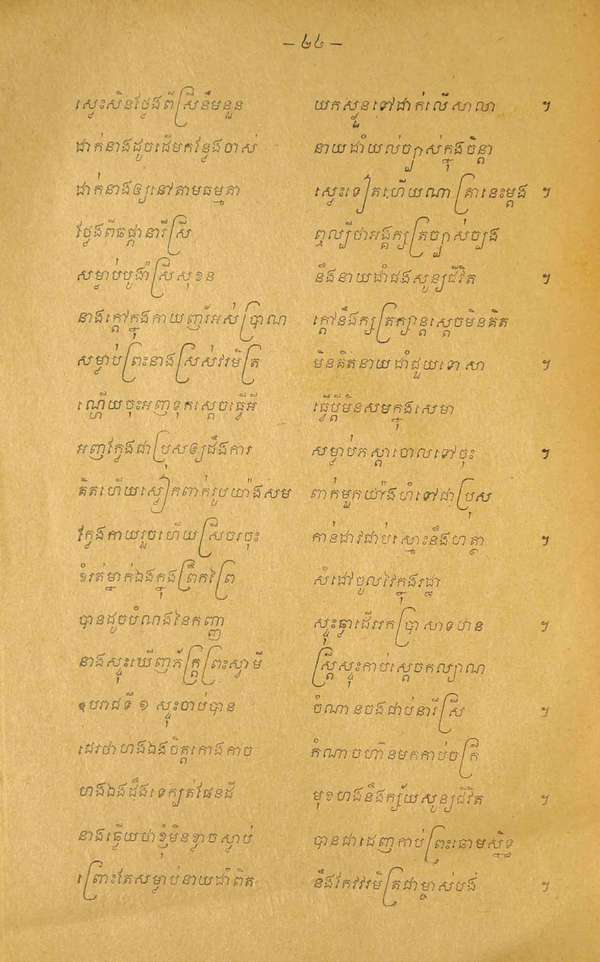 – ៤៤ –
ស្ទេះសិនថ្លែងពីស្រីនឹមនួន យកស្ងួនទៅដាក់លើសាលា ។
ដាក់នាងដូចដើមកន្លែងចាស់ នាយដាំយល់ច្បាស់ក្នុងចិន្តា
ដាក់នាងឲ្យនៅតាមធម្មតា ស្ទេះទៀតហើយណាគ្រានេះម្ដង ។
ថ្លែងពីធផ្ដានារីស្រី ឮល្បីថាអង្គក្សត្រច្បាស់ច្បង
សម្លាប់បូងាំស្រីសុខន នឹងនាយដាំផងសូន្យជីវិត ។
នាងក្ដៅក្នុងកាយញ័រអស់ប្រាណ ក្ដៅនឹងក្សត្រក្សាន្តស្ដេចមិនគិត
សម្លាប់ព្រះនាងស្រស់វរមិត្រ មិនគិតនាយដាំជួយទោសា ។
ណ្ហើយចុះអញទុកស្ដេចធ្វើអី ធ្វើប្ដីមិនសមក្នុងសេមា
អញក្លែងជាប្រុសឲ្យដឹងការ សម្លាប់កស្ដាចោលទៅចុះ ។
គិតហើយស្លៀកពាក់រូបយ៉ាងសម ពាក់មួកយ៉ាងហំទៅជាប្រុស
ក្លែងកាយរួចហើយស្រីចរចុះ កាន់ដាវជាប់ស្មោះនឹងហត្ថា ។
ខំរត់ម្នាក់ឯងក្នុងព្រឹកព្រៃ សំដៅចូលវៃក្នុងរដ្ឋា
បានដូចបំណងនៃកញ្ញា ស្ទុះផ្លាដើររកប្រាសាទឋាន ។
នាងស្ទុះឃើញភ័ក្ត្រព្រះស្វាមី ស្ត្រីស្ទុះកាប់ស្ដេចកល្យាណ
ឧបរាជទី ១ ស្ទុះចាប់បាន ចំណានចងជាប់នារីស្រី ។
ដេរថាហងឯងចិត្តកោងកាច កំណាចហ៊ានមកកាប់ចក្រី
ហងឯងដឹងទេក្បត់ផែនដី មុខហងនឹងក្ស័យសូន្យជីវិត ។
នាងធ្វើយថាខ្ញុំមិនខ្លាចស្លាប់ បានជាដេញកាប់ព្រះឆោមស្និទ្ធ
ព្រោះតែសម្លាប់នាយដាំពិត នឹងកែវវរមិត្រជាម្ចាស់បង់ ។